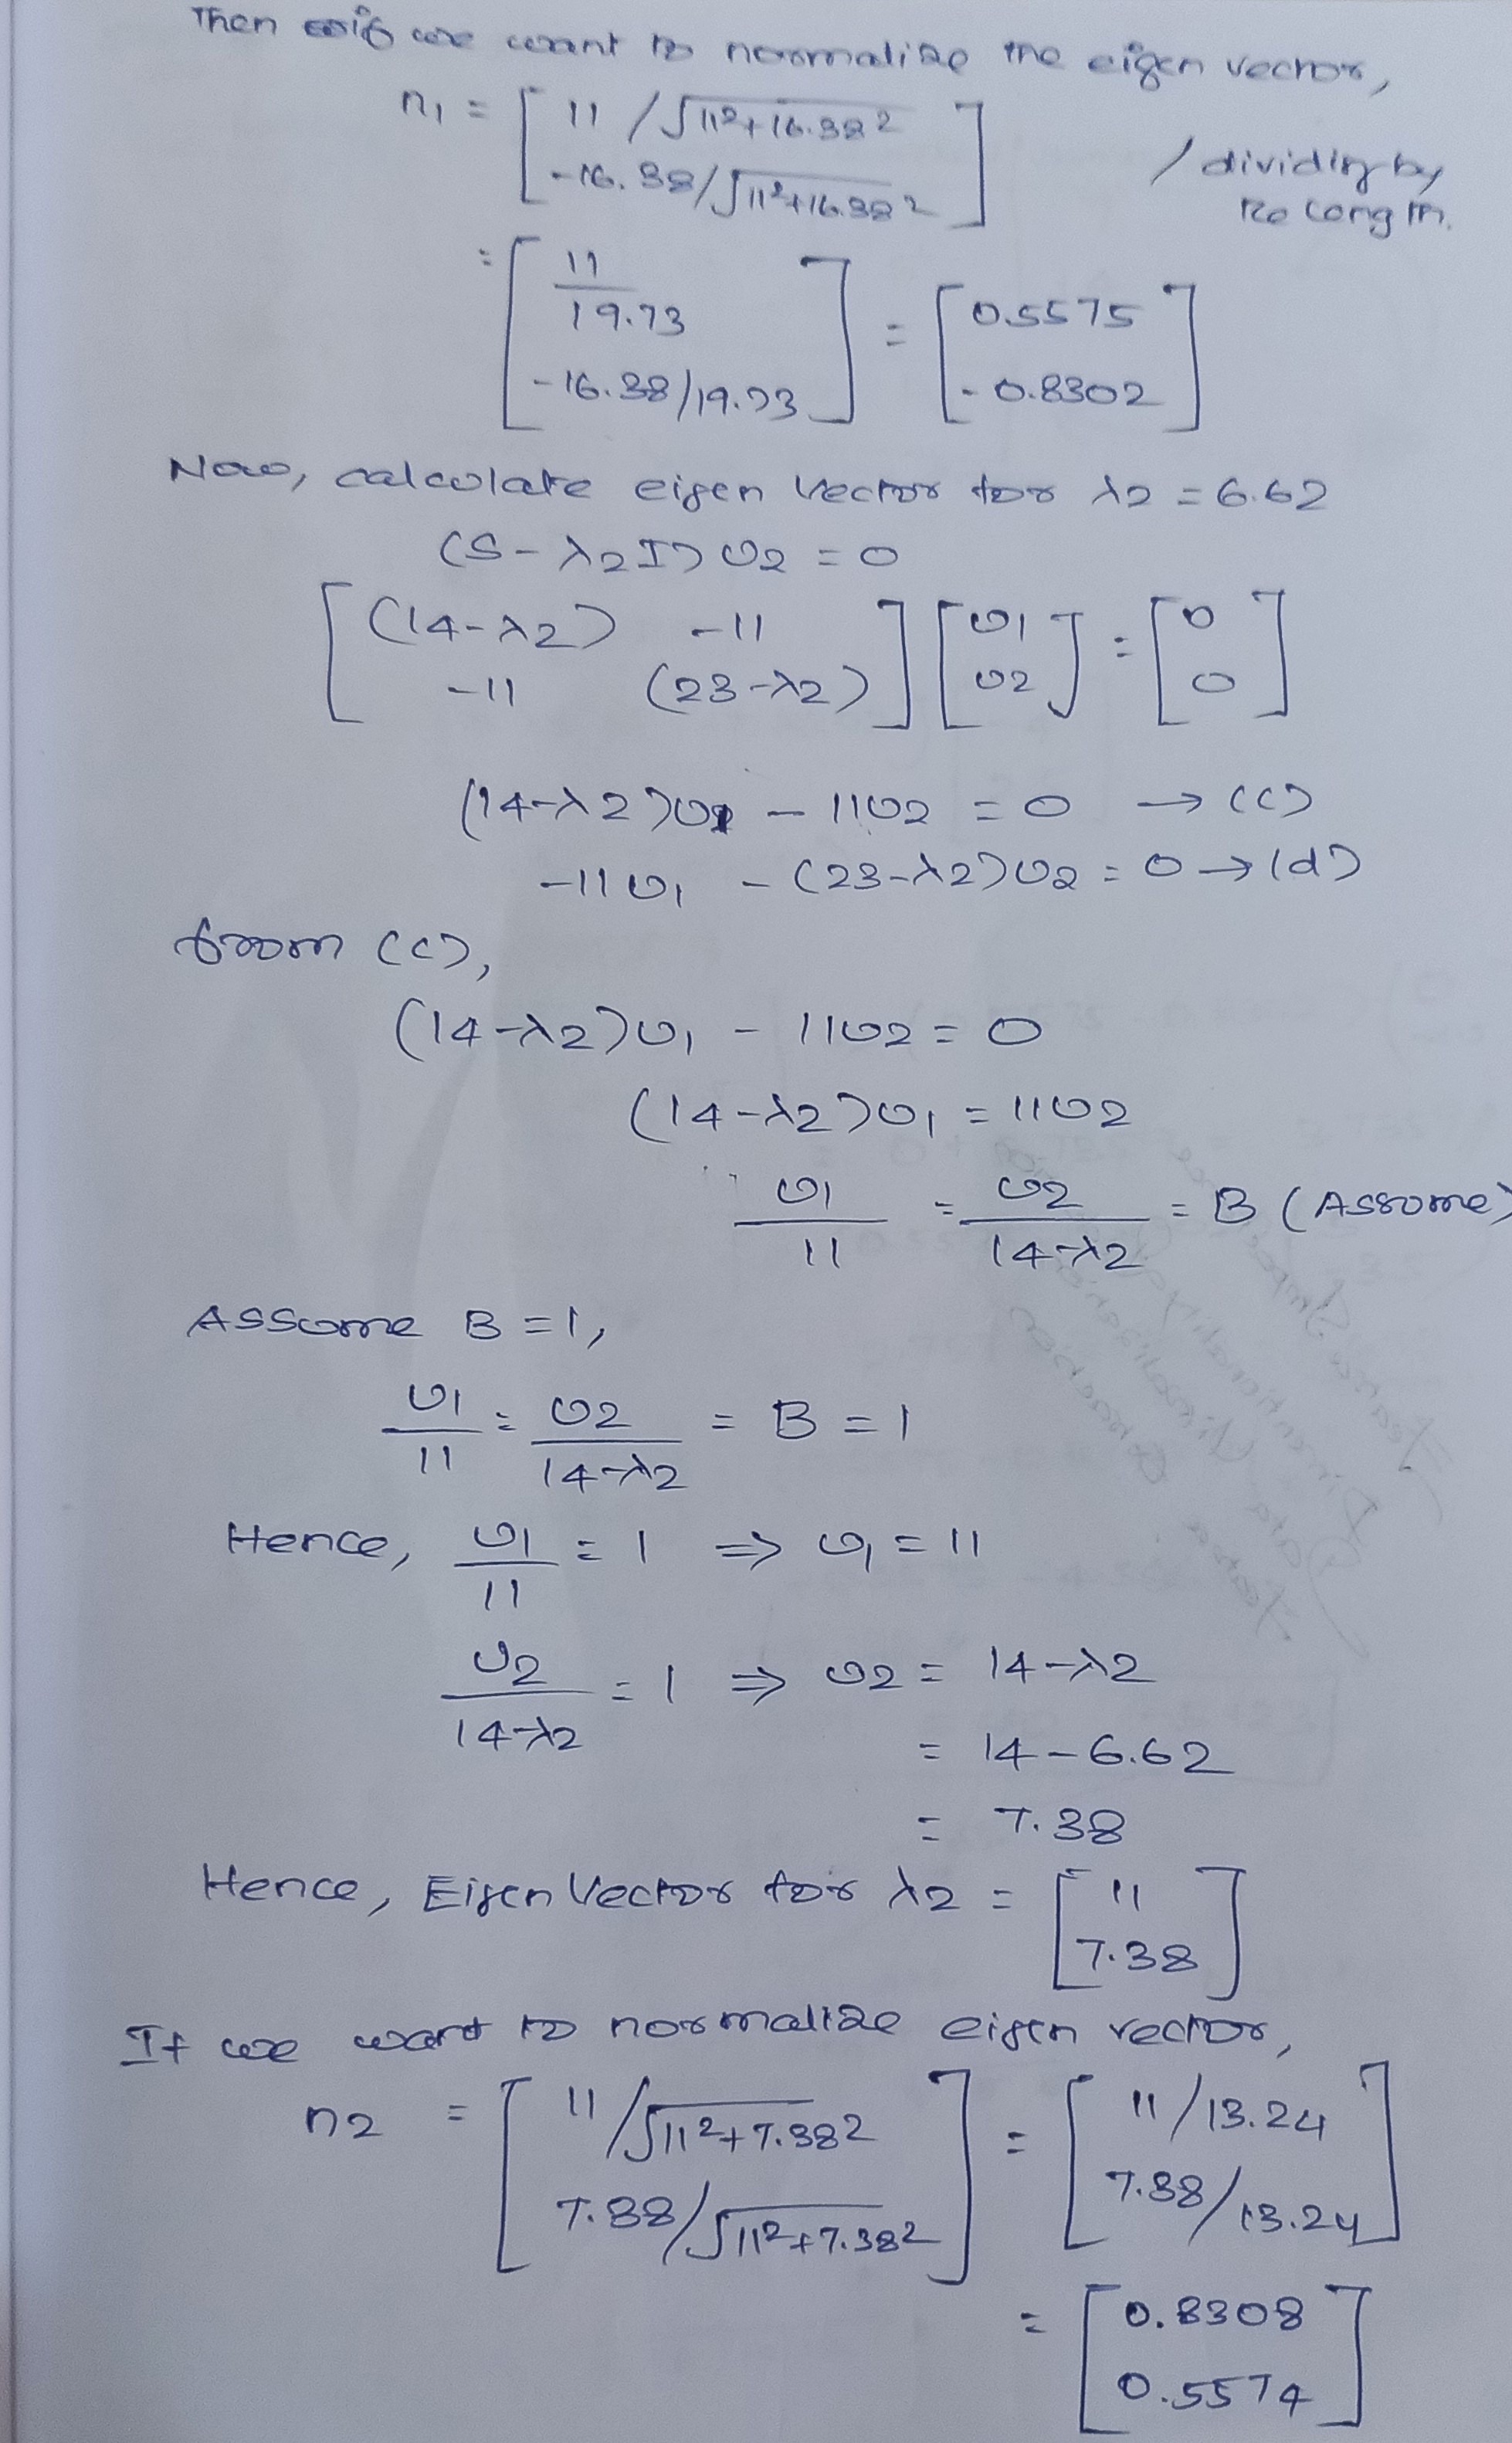 Then if we want to normalize the eigen vector,
n1 = [ 11 / √11²+16.38²
-16.38/√11²+16.38² ] / dividing by
its length.
= [ 11/19.73
-16.38/19.73 ] = [ 0.5575
-0.8302 ]
Now, calculate eigen vector for λ2 = 6.62
(S-λ2I) U2 = 0
[ (14-λ2) -11
-11 (23-λ2) ] [ U1
U2 ] = [ 0
0 ]
(14-λ2)U1 - 11U2 = 0 → (c)
-11U1 - (23-λ2)U2 = 0 → (d)
from (c),
(14-λ2)U1 - 11U2 = 0
(14-λ2)U1 = 11U2
U1/11 = U2/14-λ2 = B (Assume)
Assume B = 1,
U1/11 = U2/14-λ2 = B = 1
Hence, U1/11 = 1 ⇒ U1 = 11
U2/14-λ2 = 1 ⇒ U2 = 14-λ2
= 14-6.62
= 7.38
Hence, Eigen Vector for λ2 = [ 11
7.38 ]
If we want to normalize eigen vector,
n2 = [ 11/√11²+7.38²
7.38/√11²+7.38² ] = [ 11/13.24
7.38/13.24 ]
= [ 0.8308
0.5574 ]